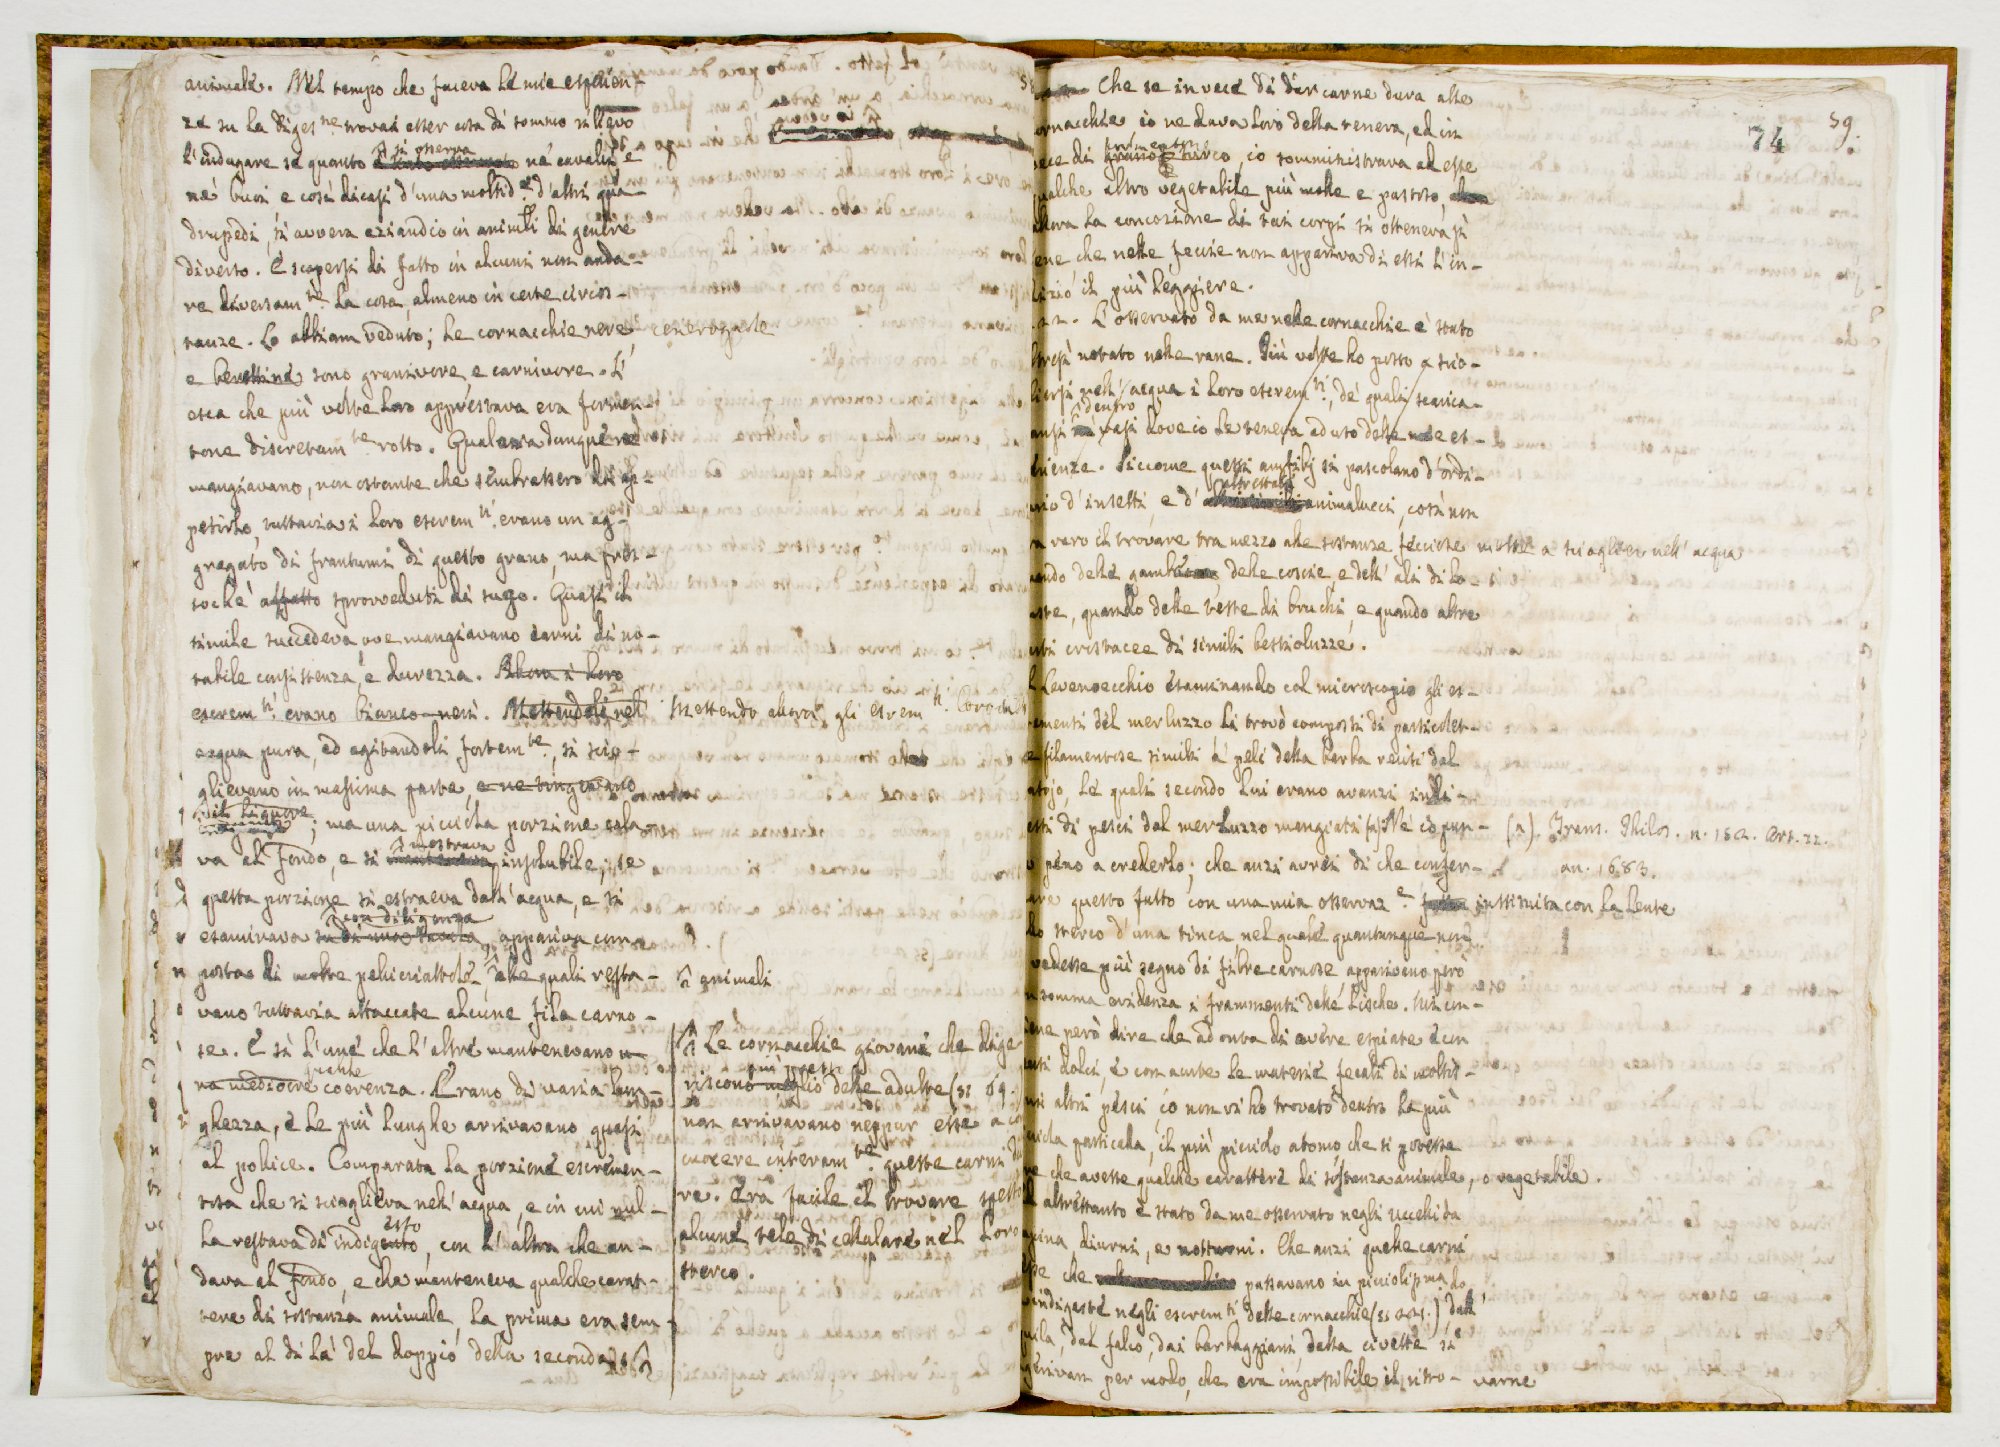 animale. Nel tempo che faceva le mie esperien-
ze su la diges.ne trovai esser cosa di sommo rilievo
l'indagare se quanto si osserva ne' cavalli e
ne' buoi e così dicasi d'una moltid.e d'altri qua-
drupedi, si avvera eziandio in animali di genere
diverso. E scopersi di fatto in alcuni non anda-
re diversam.te la cosa, almeno in certe circos-
tanze. Lo abbiam veduto; le cornacchie nere, cenerognole
e berettine sono granivore, e carnivore. L'
esca che più volte loro apprestava era formen-
tone discretam.te rotto. Qualora dunque ne
mangiavano, non ostante che sembrassero di ap-
petirlo, tuttavia i loro escrem.ti erano un ag-
gregato di frantumi di questo grano, ma pres-
sochè affatto sprovveduti di sugo. Quasi il
simile succedeva, ove mangiavano carni di no-
tabile consistenza, e durezza. Allora i loro
escrem.ti erano bianco-neri. Mettendoli nel Mettendo allora gli escrem.ti loro in
acqua pura, ed agitandoli fortem.te, si scio-
glievano in massima parte, e ne tingevano
il liquore; ma una picciola porzione cala-
va al fondo, e si mostrava insolubile; se
questa porzione si estraeva dall'acqua, e si
esaminava con diligenza, appariva com-
posta di molte pellicciattole, alle quali resta- animali
vano tuttavia attaccate alcune fila carno-
se. E sì l'une che l'altre mantenevano u-
na mediocre coerenza. Erano di varia lun-
ghezza, e le più lunghe arrivavano quasi
al pollice. Comparata la porzione escremen-
tosa che si scioglieva nell'acqua, e in cui nul-
la restava di indigesto, con l'altra che an-
dava al fondo, e che manteneva qualche carat-
tere di sostanza animale, la prima era sem-
pre al di là del doppio della seconda.
Le cornacchie giovani che dige-
riscono più presto delle adulte (§ 69.)
non arrivavano neppur esse a
cuocere interam.te queste carni
re. Era facile il trovare spesso
alcune tele di cellulare nel loro
sterco.
74 59.
Che se in vece di dar carne dura alle
ornacchie io ne dava loro della tenera, ed in
vece di formentone, io somministrava ad esse
qualche altro vegetabile più molle e pastoso,
allora la concozione di tai corpi si otteneva sì
bene che nelle feccie non appariva di essi l'in-
dizio il più leggiere.
L'osservato da me nelle cornacchie è stato
altresì notato nelle rane. Più volte ho posto a scio-
gliersi nell'acqua i loro escrem.ti, de' quali scarica-
ansi dentro vasi dove io le teneva ad uso delle mie es-
perienze. Siccome questi amfibj si pascolano d'ordi-
nario d'insetti, e d'altrettali animalucci, così non
era raro il trovare tra mezzo alle sostanze fecciose messe a sciogliere nell'acqua
quando delle gambe delle coscie, e dell'ali di lo-
uste, quando delle teste di bruchi, e quando altre
parti crostacee di simili bestioluzze.
Levenoecchio esaminando col microscopio gli es-
crementi del merluzzo li trovò composti di particolet-
te filamentose simili a' peli della barba recisi dal
rasojo, le quali secondo lui erano avanzi indi-
gesti di pesci dal merluzzo mangiati (a). Nè io pun- (a). Trans. Philos. n. 152. Art. 22.
to peno a crederlo; che anzi avrei di che confer- an. 1683.
mare questo fatto con una mia osservaz.e instituita con la lente
lo sterco d'una tinca, nel quale quantunque non
vedesse più segno di fibre carnose, apparivano però
in somma evidenza i frammenti delle lische. Mi con-
viene però dire che ad onta di avere espiate con
lenti dolci, e con acute le materie fecali di moltis-
simi altri pesci, io non vi ho trovato dentro la più
picciola particella, il più picciolo atomo che si potesse
dire che avesse qualche carattere di sostanza animale, o vegetabile.
altrettanto è stato da me osservato negli uccelli da
rapina, diurni, e notturni. Che anzi quelle carni
stesse che passavano in picciolissima do-
se indigeste negli escrem.ti delle cornacchie, dall'
aquila, dal falco, dai barbaggiani, dalla civetta si
digerivan per modo, che era impossibile il ritro- varne